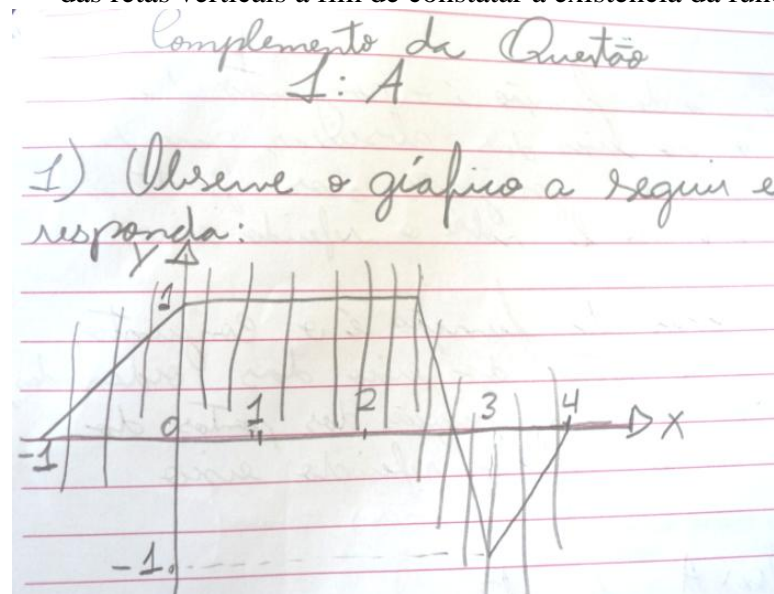 das retas verticais a fim de constatar a existência da fun
Complemento da Questão
1: A
1) Observe o gráfico a seguir e
responda:
Y
1
0 1 2 3 4 X
-1
-1